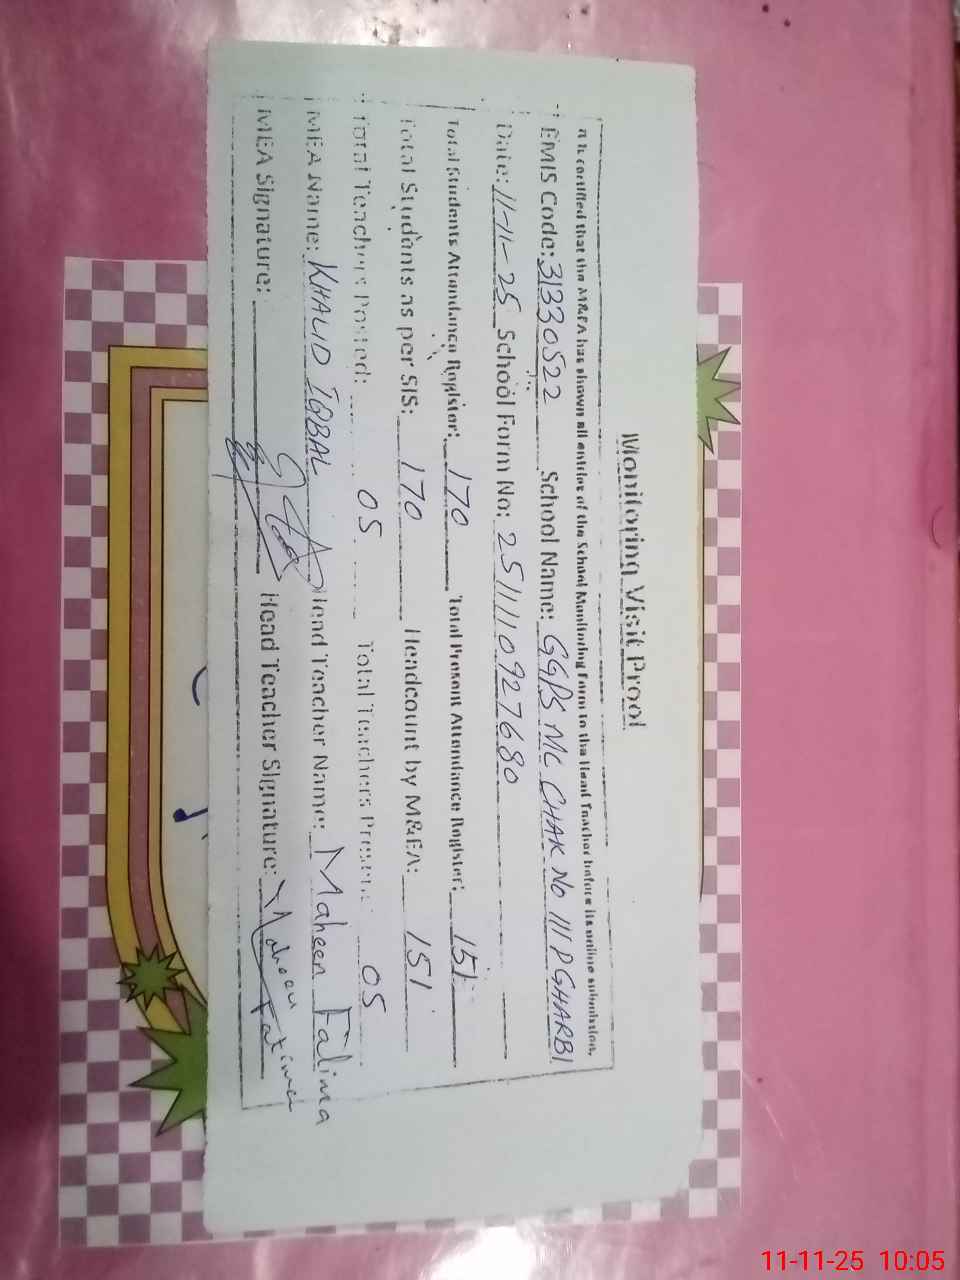 Monitoring Visit Proof
It is certified that the M&EA has shown all entries of the School Monitoring Form to the Head Teacher before its online submission.
EMIS Code: 31330522 School Name: GGPS MC CHAK NO 111 P GHARBI
Date: 11-11-25 School Form No: 2511110927680
Total Students Attendance Register: 170 Total Present Attendance Register: 151
Total Students as per SIS: 170 Headcount by M&EA: 151
Total Teachers Posted: 05 Total Teachers Present: 05
MEA Name: KHALID IQBAL Head Teacher Name: Maheen Fatima
MEA Signature: Head Teacher Signature: Maheen Fatima
11-11-25 10:05